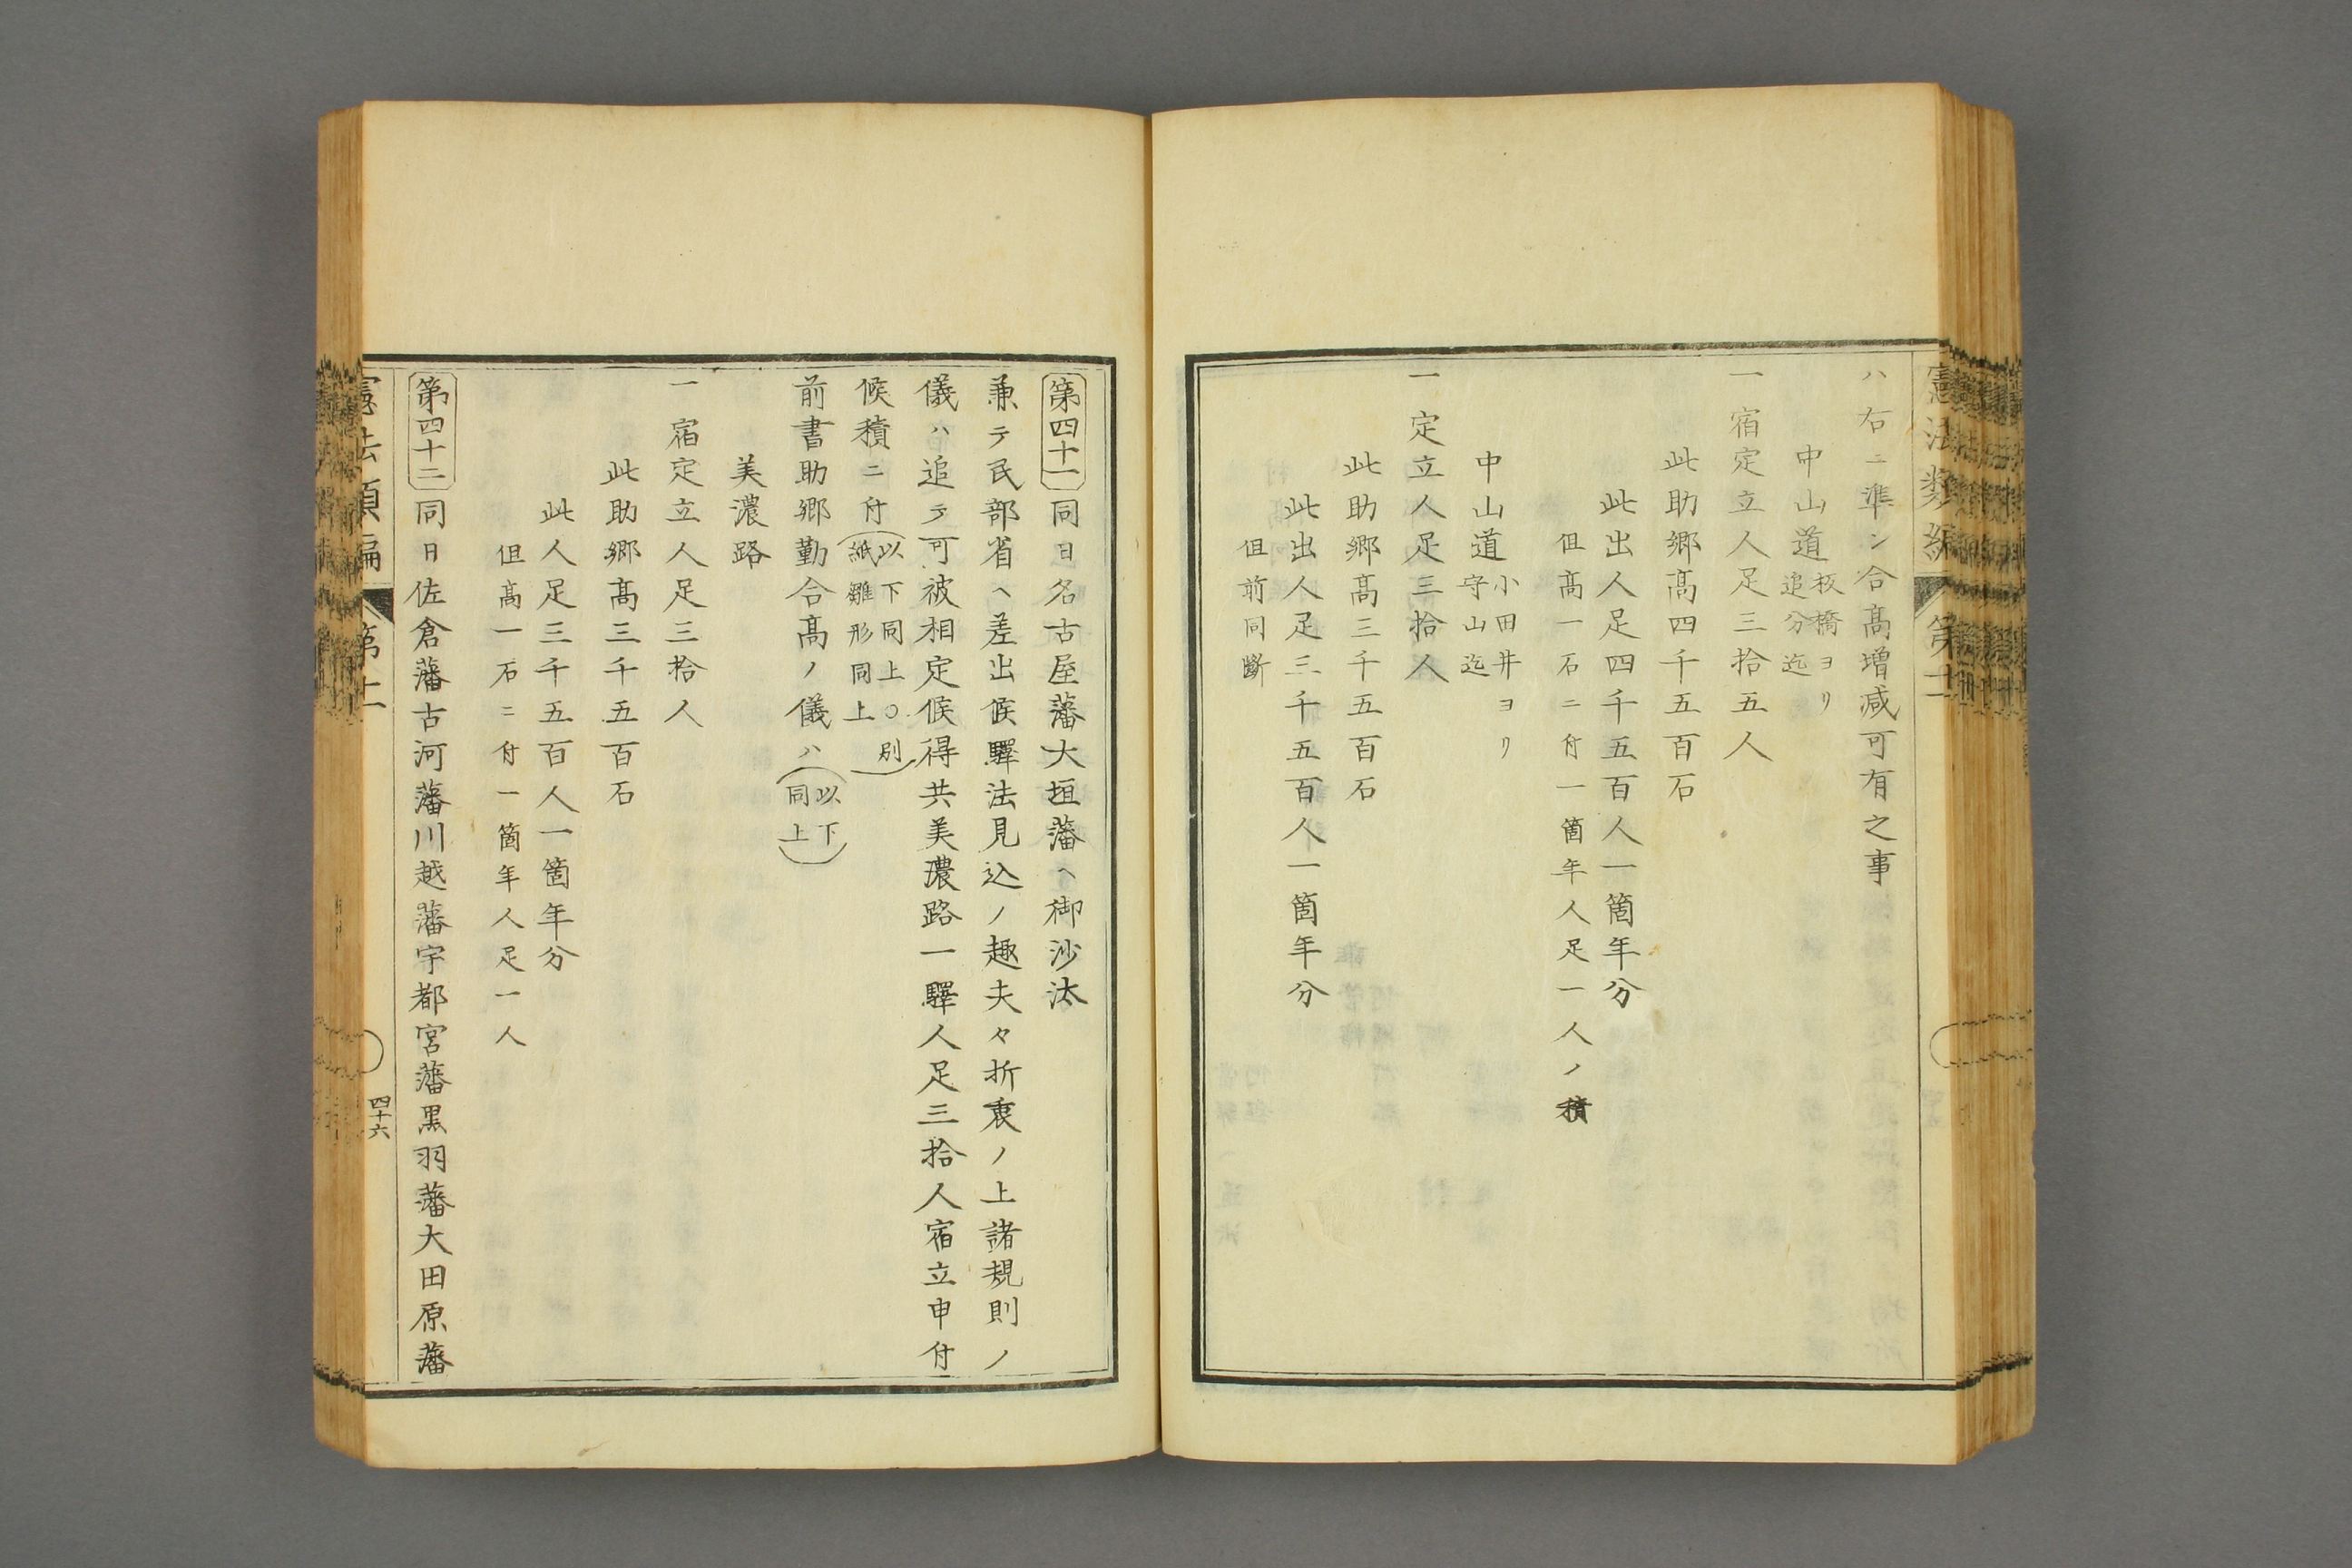 ハ右ニ準シ合高増减可有之事
中山道板橋ヨリ追分迄
一宿定立人足三拾五人
此助郷高四千五百石
此出人足四千五百人一箇年分
但高一石ニ付一箇年人足一人ノ積
中山道小田井ヨリ守山迄
一定立人足三拾人
此助郷高三千五百石
此出人足三千五百人一箇年分
但前同斷
第四十一同日名古屋藩大垣藩ヘ御沙汰
兼テ民部省ヘ差出候驛法見込ノ趣夫々折衷ノ上諸規則ノ
儀ハ追テ可被相定候得共美濃路一驛人足三拾人宿立申付
候積ニ付(以下同上○別紙雛形同上)
前書助郷勤合高ノ儀ハ(以下同上)
美濃路
一宿定立人足三拾人
此助郷高三千五百石
此人足三千五百人一箇年分
但高一石ニ付一箇年人足一人
第四十二同日佐倉藩古河藩川越藩宇都宮藩黒羽藩大田原藩
四十六